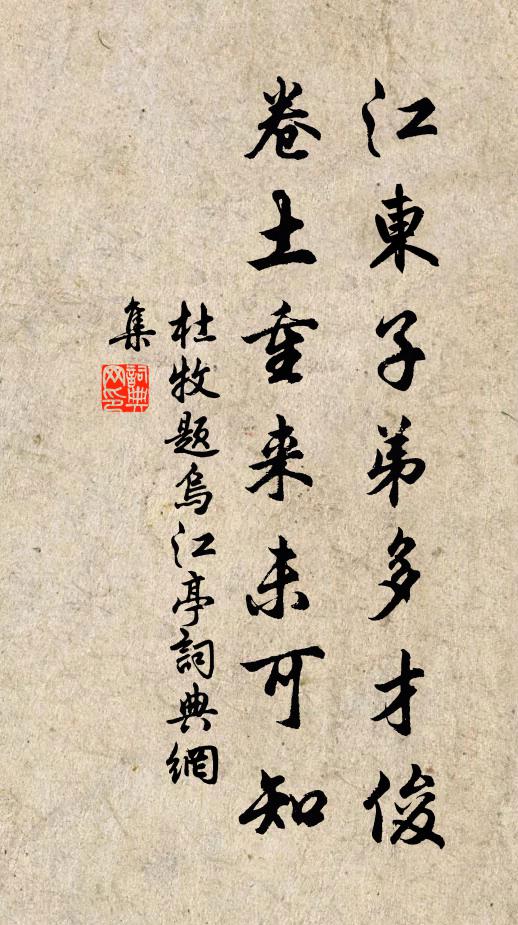 江東子弟多才俊
卷土重来未可知
杜牧題烏江亭詞典網
集
詞典网印